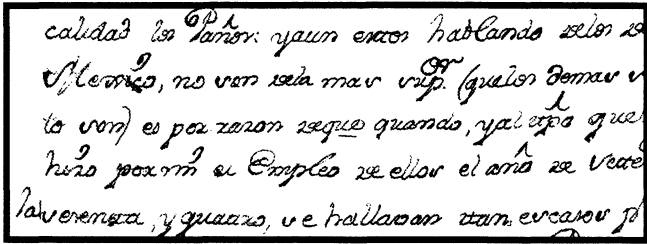 calidad los Paños: y aun estos hablando delos de
Mexico, no son dela mas sup.or (quelos demas s
to son) es por razon deque quando, y al tpõ que
hizo por mi el Empleo de ellos el año de sete
sesenta, y quatro, se hallavan tan escasos